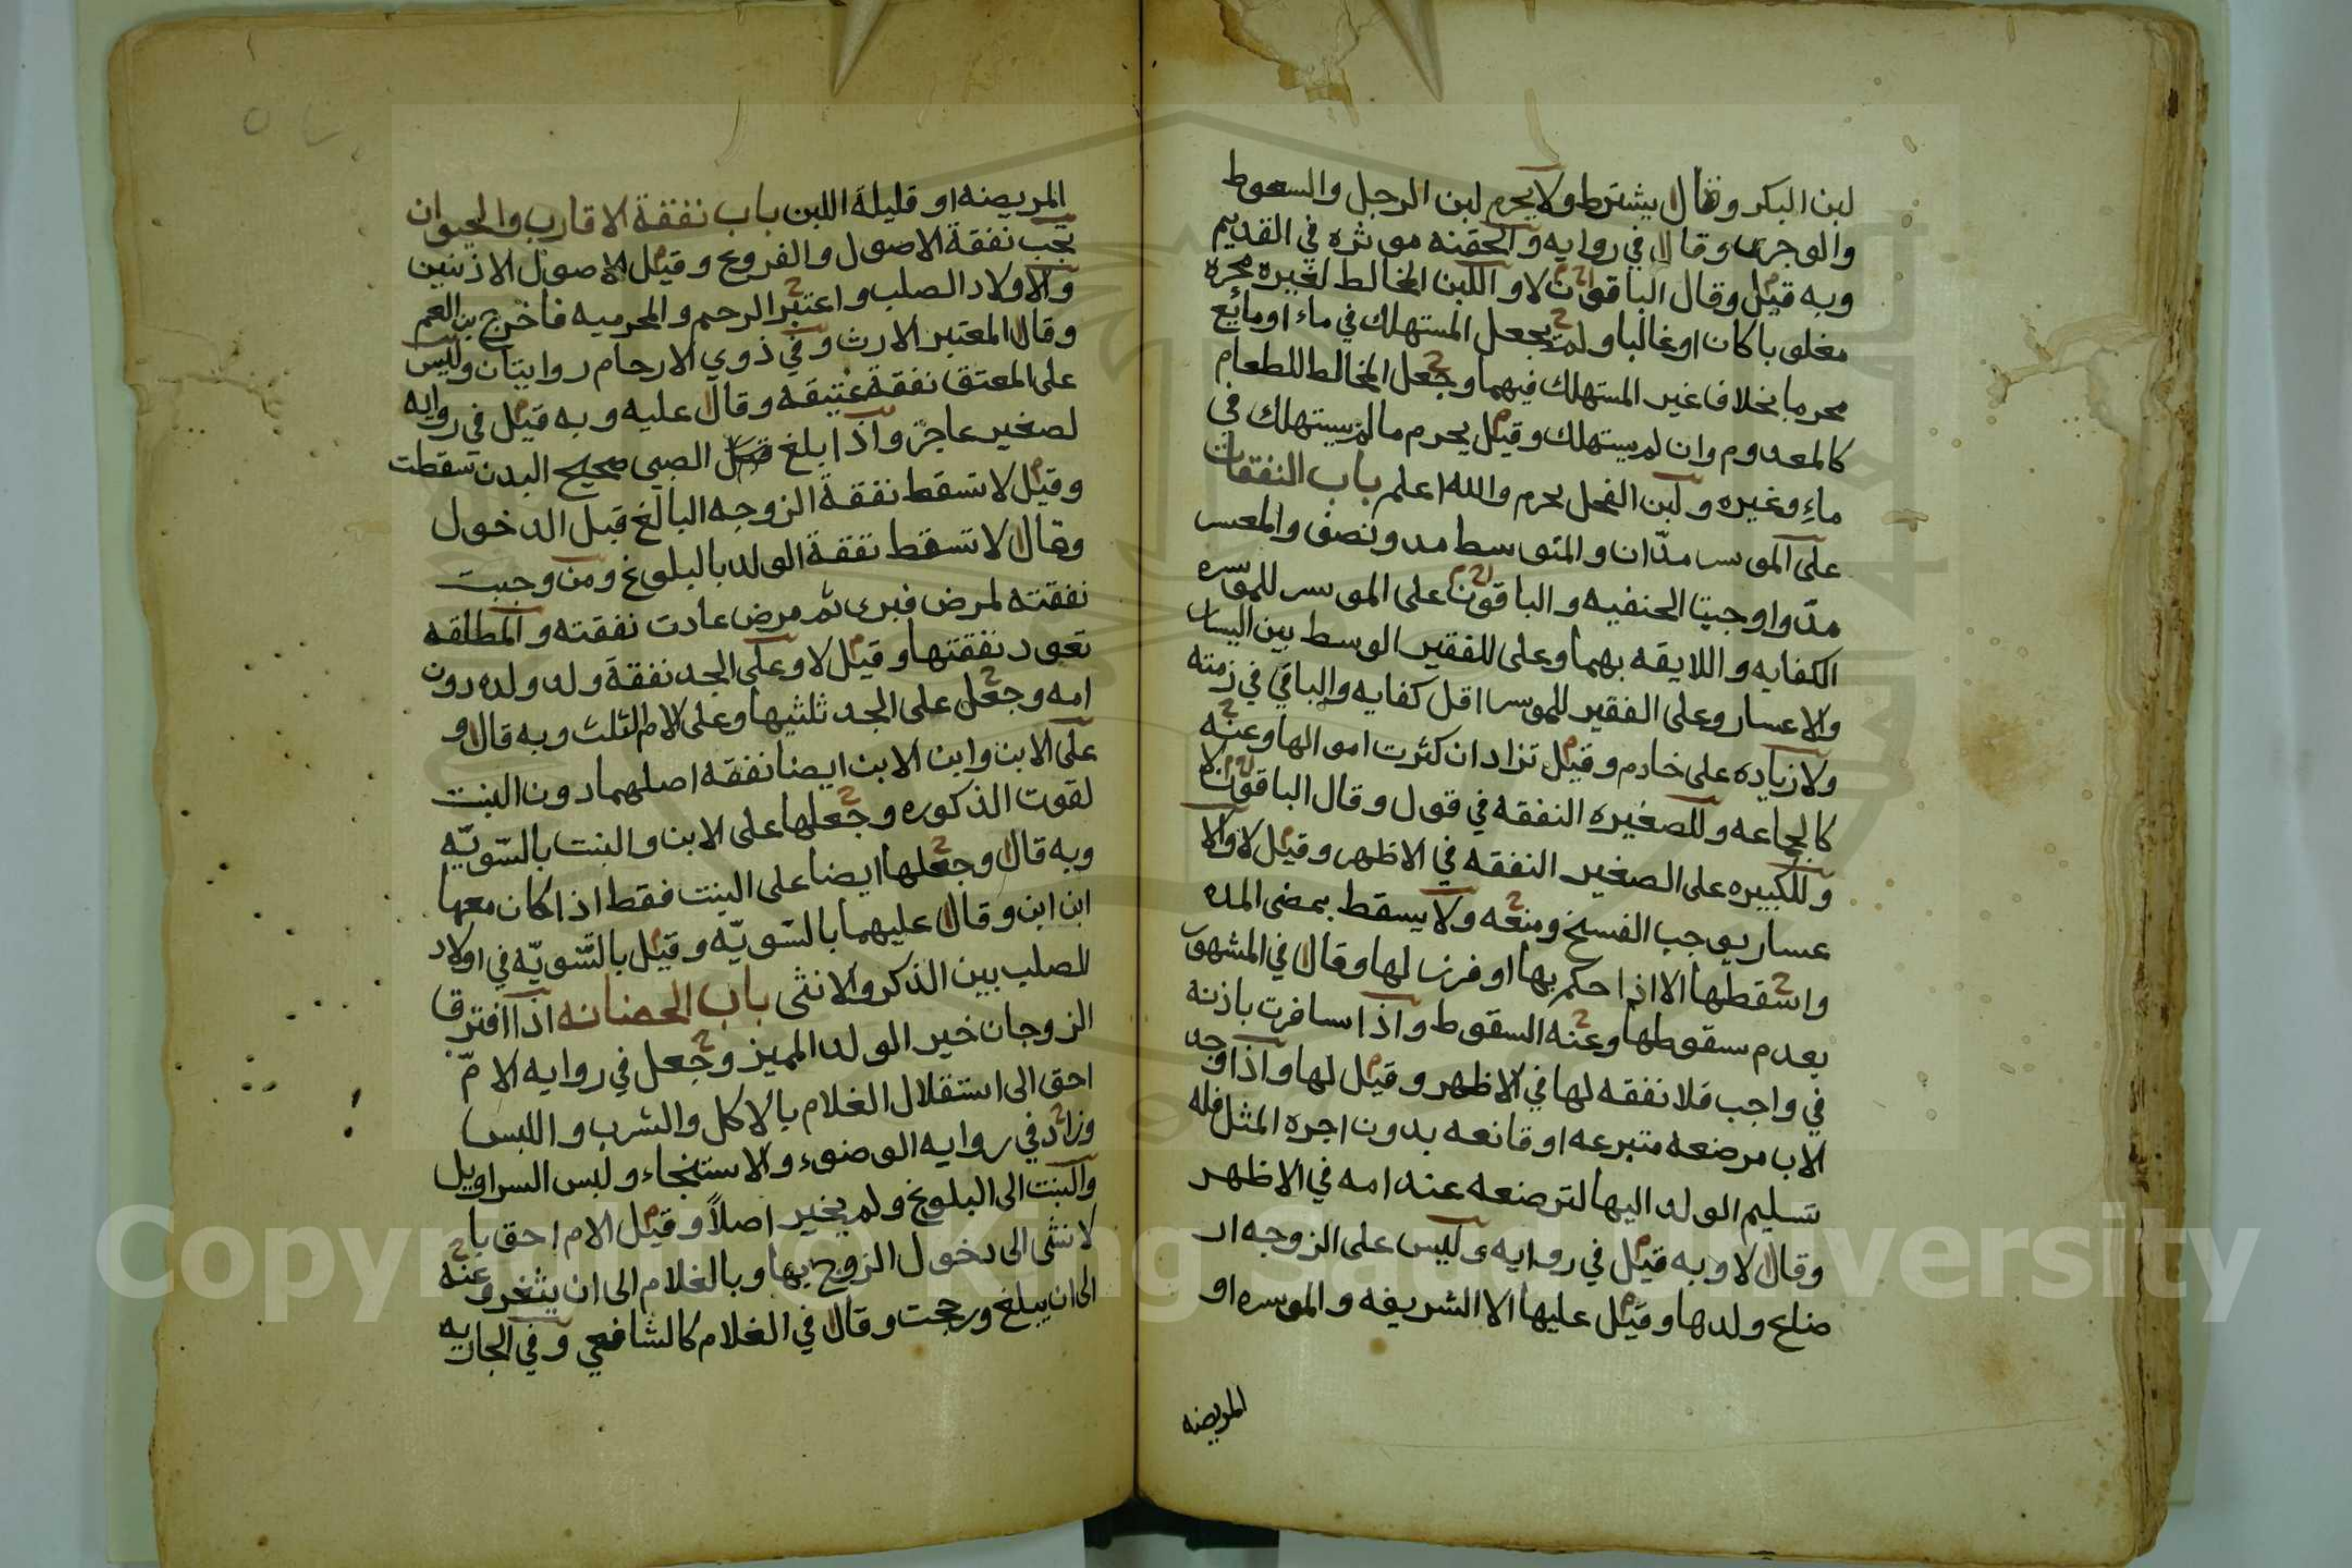 لبن البكر وقال يشترط ولا يحرم لبن الرجل والسعوط
والوجر وقال في روايه والحقنه موثره في القديم
وبه قيل وقال الباقون لا واللبن المخالط لغيره محره
مغلوبا كان او غالبا ولم يجعل المستهلك في ماء او مائع
محرما بخلاف غير المستهلك فيهما وجعل المخالط للطعام
كالمعدوم وان لم يستهلك وقيل يحرم ما لم يستهلك في
ماء وغيره ولبن الفحل يحرم والله اعلم باب النفقات
على الموسر مدّان والمتوسط مد ونصف والمعسر
مدّ واوجبتا الحنفيه والباقون على الموسر للموسره
الكفايه واللايقه بهما وعلى للفقير الوسط بين اليسار
والاعسار وعلى الفقير للموسرا اقل كفايه والباقي في زمته
ولا زياده على خادم وقيل تزاد ان كثرت اموالها وعنه
كالجاعه وللصغيره النفقه في قول وقال الباقون لا
وللكبيره على الصغير النفقه في الاظهر وقيل لا والا
عسار يوجب الفسخ ومنعه ولا يسقط بمضى المده
واسقطها الا اذا حكم بها او فرض لها وقال في المشهور
بعدم سقوطها وعنه السقوط واذا سافرت باذنه
في واجب فلا نفقه لها في الاظهر وقيل لها واذا وجد
الاب مرضعه متبرعه او قانعه بدون اجره المثل فله
تسليم الولد اليها لترضعه عند امه في الاظهر
وقال لا وبه قيل في روايه وليس على الزوجه ار
ضاع ولدها وقيل عليها الا الشريفه والموسره او
المريضه
المريضه او قليلة اللبن باب نفقة الاقارب والحيوان
تجب نفقة الاصول والفروع وقيل الاصول الادنين
والاولاد الصلب واعتبر الرحم والمحرميه فاخرج بن العم
وقال المعتبر الارث وفي ذوي الارحام روايتان وليس
على المعتق نفقة عتيقه وقال عليه وبه قيل في روايه
لصغير عاجز واذا بلغ الصبي صحيح البدن سقطت
وقيل لا تسقط نفقة الزوجه البالغ قبل الدخول
وقال لا تسقط نفقة الولد بالبلوغ ومن وجبت
نفقته لمرض فبرى ثم مرض عادت نفقته والمطلقه
تعود نفقتها وقيل لا وعلى الجد نفقة ولد ولده دون
امه وجعل على الجد ثلثيها وعلى الام الثلث وبه قال و
على الابن وابن الابن ايضا نفقه اصلهما دون البنت
لقوت الذكوره وجعلها على الابن والبنت بالسّويّه
وبه قال وجعلها ايضا على البنت فقط اذا كان معها
ابن ابن وقال عليهما بالسّويّه وقيل بالسّويّه في اولاد
للصلب بين الذكر والانثى باب الحضانه اذا افترق
الزوجان خير الولد المميز وجعل في روايه الامّ
احق الى استقلال الغلام بالاكل والشرب واللبس
وزاد في روايه الوضوء والاستنجاء ولبس السراويل
والبنت الى البلوغ ولم يخير اصلاً وقيل الام احق با
لانثى الى دخول الزوج بها وبالغلام الى ان يثغر وعنه
الى ان يبلغ ورجحت وقال في الغلام كالشافعي وفي الجاريه
Copyright © King Saud University